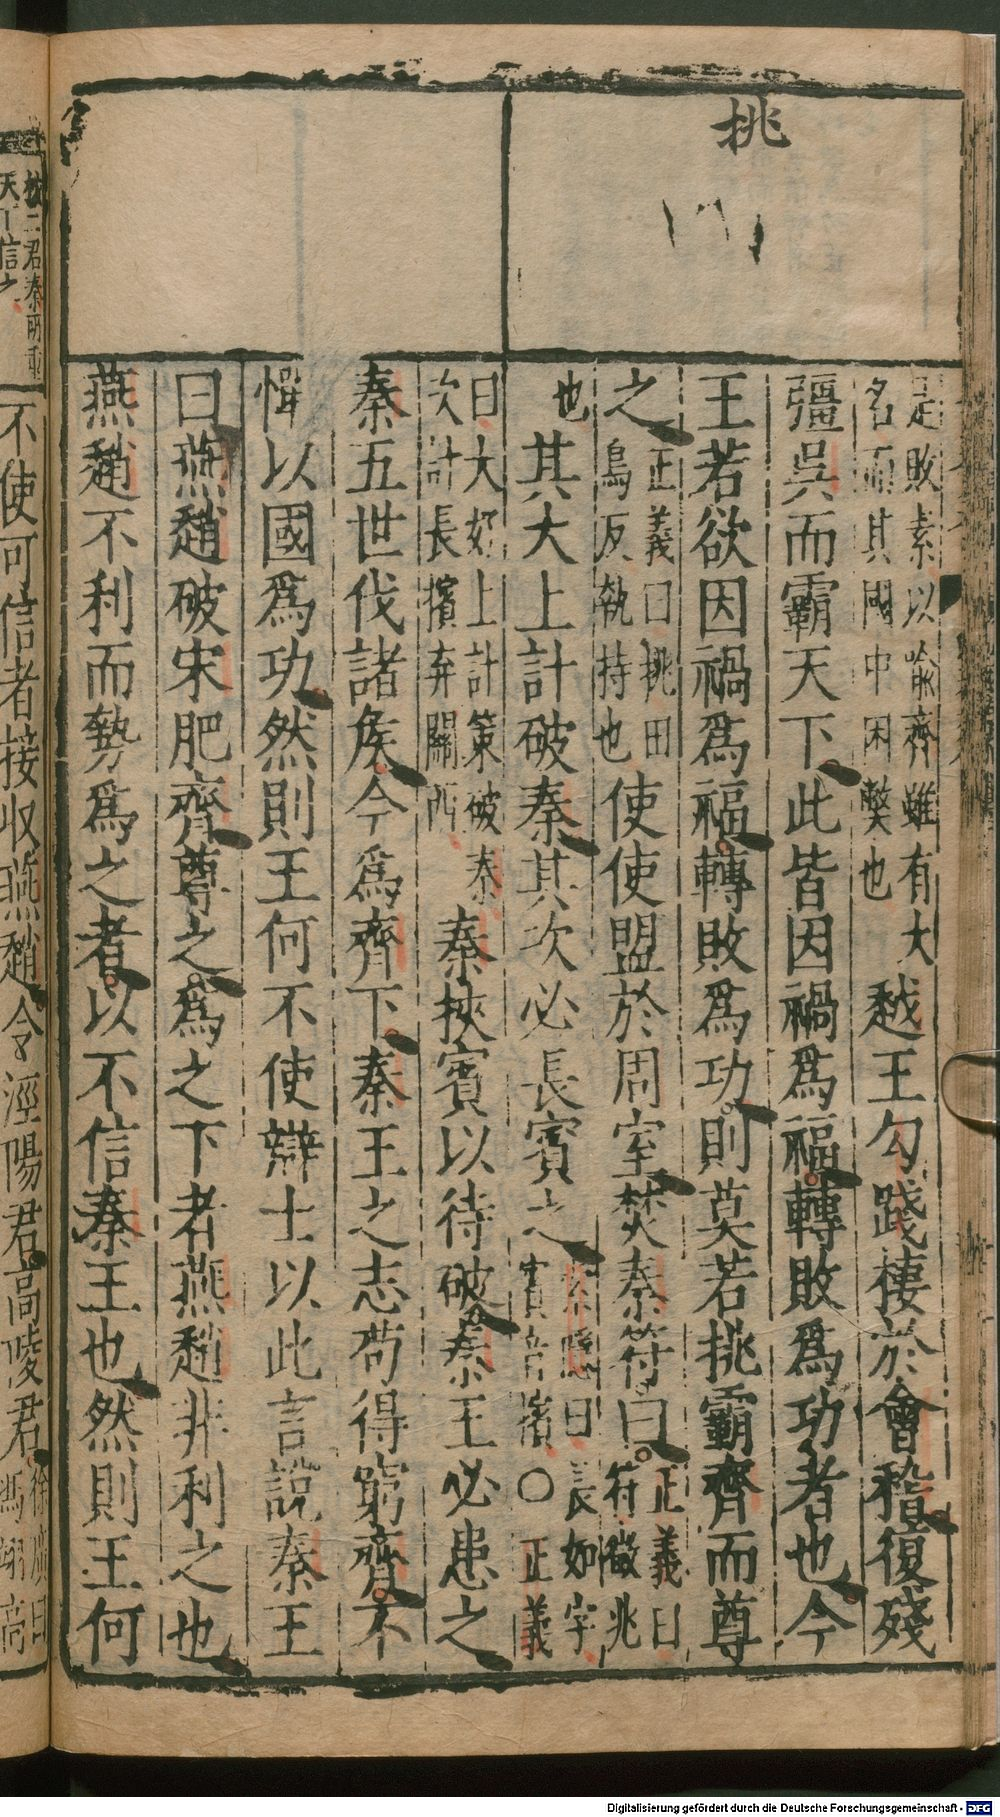 挑
是敗素以喻齊雖有大
名而其國中困獘也
越王勾踐棲於會稽復殘
彊吳而霸天下此皆因禍爲福轉敗爲功者也今
王若欲因禍爲福轉敗爲功則莫若挑霸齊而尊
之
正義曰挑田
鳥反執持也
使使盟於周室焚秦符曰
正義曰
符徵兆
也
其大上計破秦其次必長賓之
索隱曰長如字
賓音擯○正義
曰大好上計策破秦
次計長擯弃關西
秦挾賓以待破秦王必患之
秦五世伐諸侯今爲齊下秦王之志苟得窮齊不
憚以國爲功然則王何不使辯士以此言說秦王
曰燕趙破宋肥齊尊之爲之下者燕趙非利之也
燕趙不利而勢爲之者以不信秦王也然則王何
不使可信者接收燕趙令涇陽君高陵君
徐廣曰
馮翊高
二君秦所重
天下信之
Digitalisierung gefördert durch die Deutsche Forschungsgemeinschaft - DFG